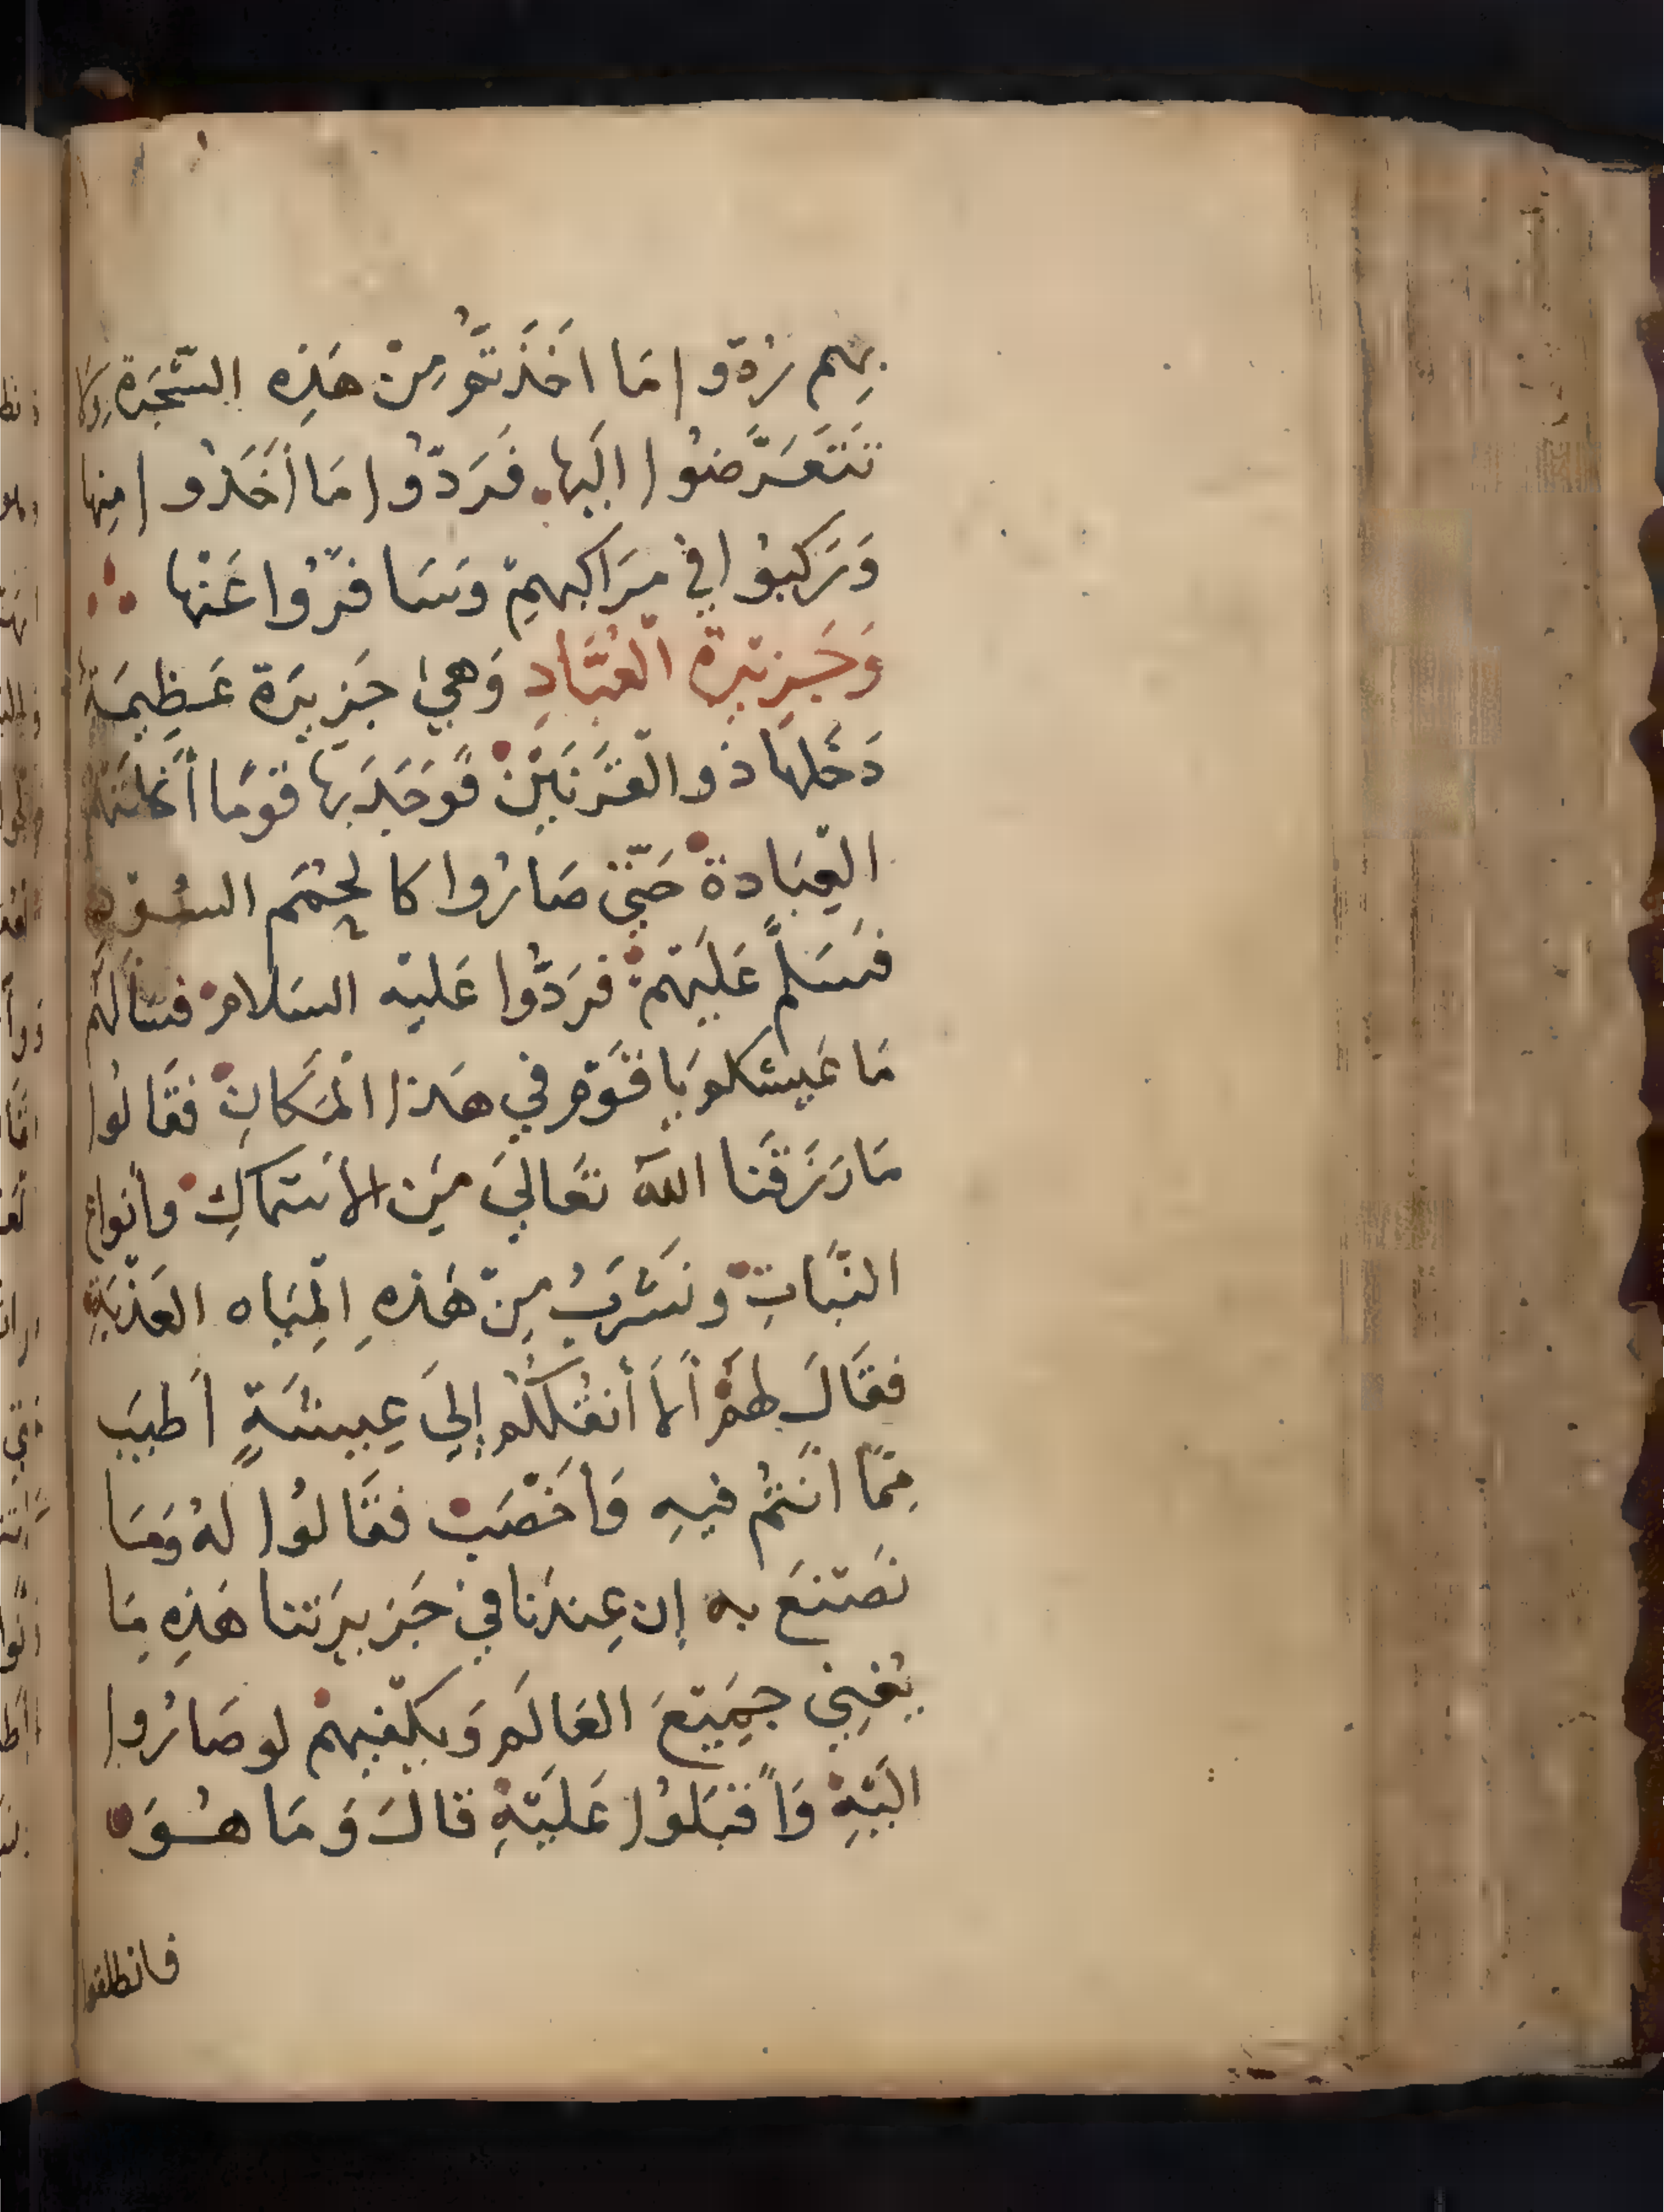 بِهِم رُدّوا مَا اَخَذتُّم مِنْ هَذِه الشَّجَرَة وَلا
تَتَعَرَّضوُا اليَها فَرَدّوُا مَا أَخَذوُا مِنها
وَرَكبوُا في مَرَاكِبِهمْ وَسَافَرُوا عَنْها
وَجَزيرةُ العُبَّادِ وَهىَ جَزيرَة عَظِيمَةٌ
دَخَلها ذو القَرنَيْن فوَجَدَ بها قَومًا أنحلتهم
العِبَادة حَتّى صَارُوا كالحُمَم السُود
فسَلم عَلَيهمْ فرَدُّوا عَليْه السَلامْ فسَألهُم
مَا عَيشكم يا قَوْم في هَذا المَكانِ فقَالُوا
مَا رَزَقَنا الله تعَالىَ مِنَ الأسَماكِ وأنواع
النبَاتِ ونَشرَبُ مِنْ هَذهِ المِيَاه العَذْبَةِ
فقَالَ لهَمْ ألاَ أنقُلكُم إلىَ عِيشَةٍ أطيَب
مِمّا أنَتُم فيهِ وَأخَصَبْ فقَالوُا لهُ وَمَا
نَصَنعَ به إن عِندَنا في جَزيرَتنا هَذِه مَا
يُغنِى جَمِيْعَ العَالَم وَيكفيهمْ لو صَارُوا
اليَهْ وَأقبَلوُا عَليَهِ قالَ وَمَا هُوَ
فانطلقوا